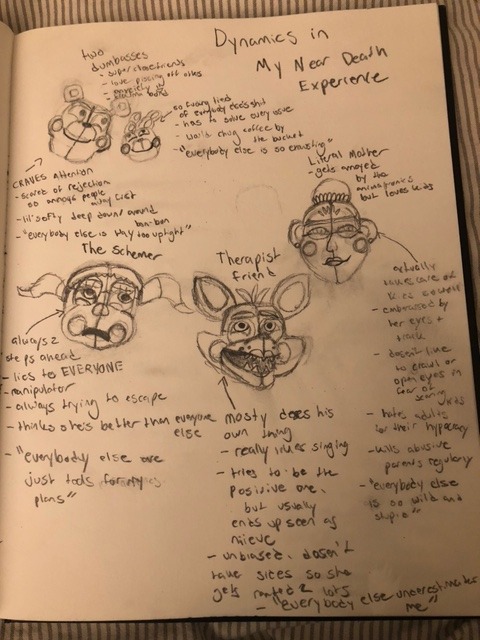 Dynamics in
My Near Death
Experience
two
dumbasses
- super close friends
- love pissing off others
so fucking tired
of everybody else's shit
- has to solve every issue
- would chug coffee by
the bucket
- "everybody else is so exhausting"
CRAVES Attention
- scared of rejection
so annoys people
- lil' softy deep down around
bon-bon
- "everybody else is way too uptight"
Literal Mother
- gets annoyed
by the
animatronics
but loves kids
The Schemer
always 2
steps ahead
- lies to EVERYONE
- manipulator
- always trying to escape
- thinks she's better than everyone
else
- "everybody else are
just tools for my
plans"
Therapist
friend
mosty does his
own thing
- really likes singing
- tries to be the
positive one,
but usually
ends up seen as
nieve
- unbiased, doesn't
take sices so she
gets ranted 2 lots
- "everybody else underestimates
me"
actually
take care of
- embarrassed by
her eyes +
- doesn't like
to crawl or
open eyes in
fear of
scaring
kids
- hates adults
for their hypocracy
- kills abusive
parents regularly
- "everybody else
is so wild and
stupid"